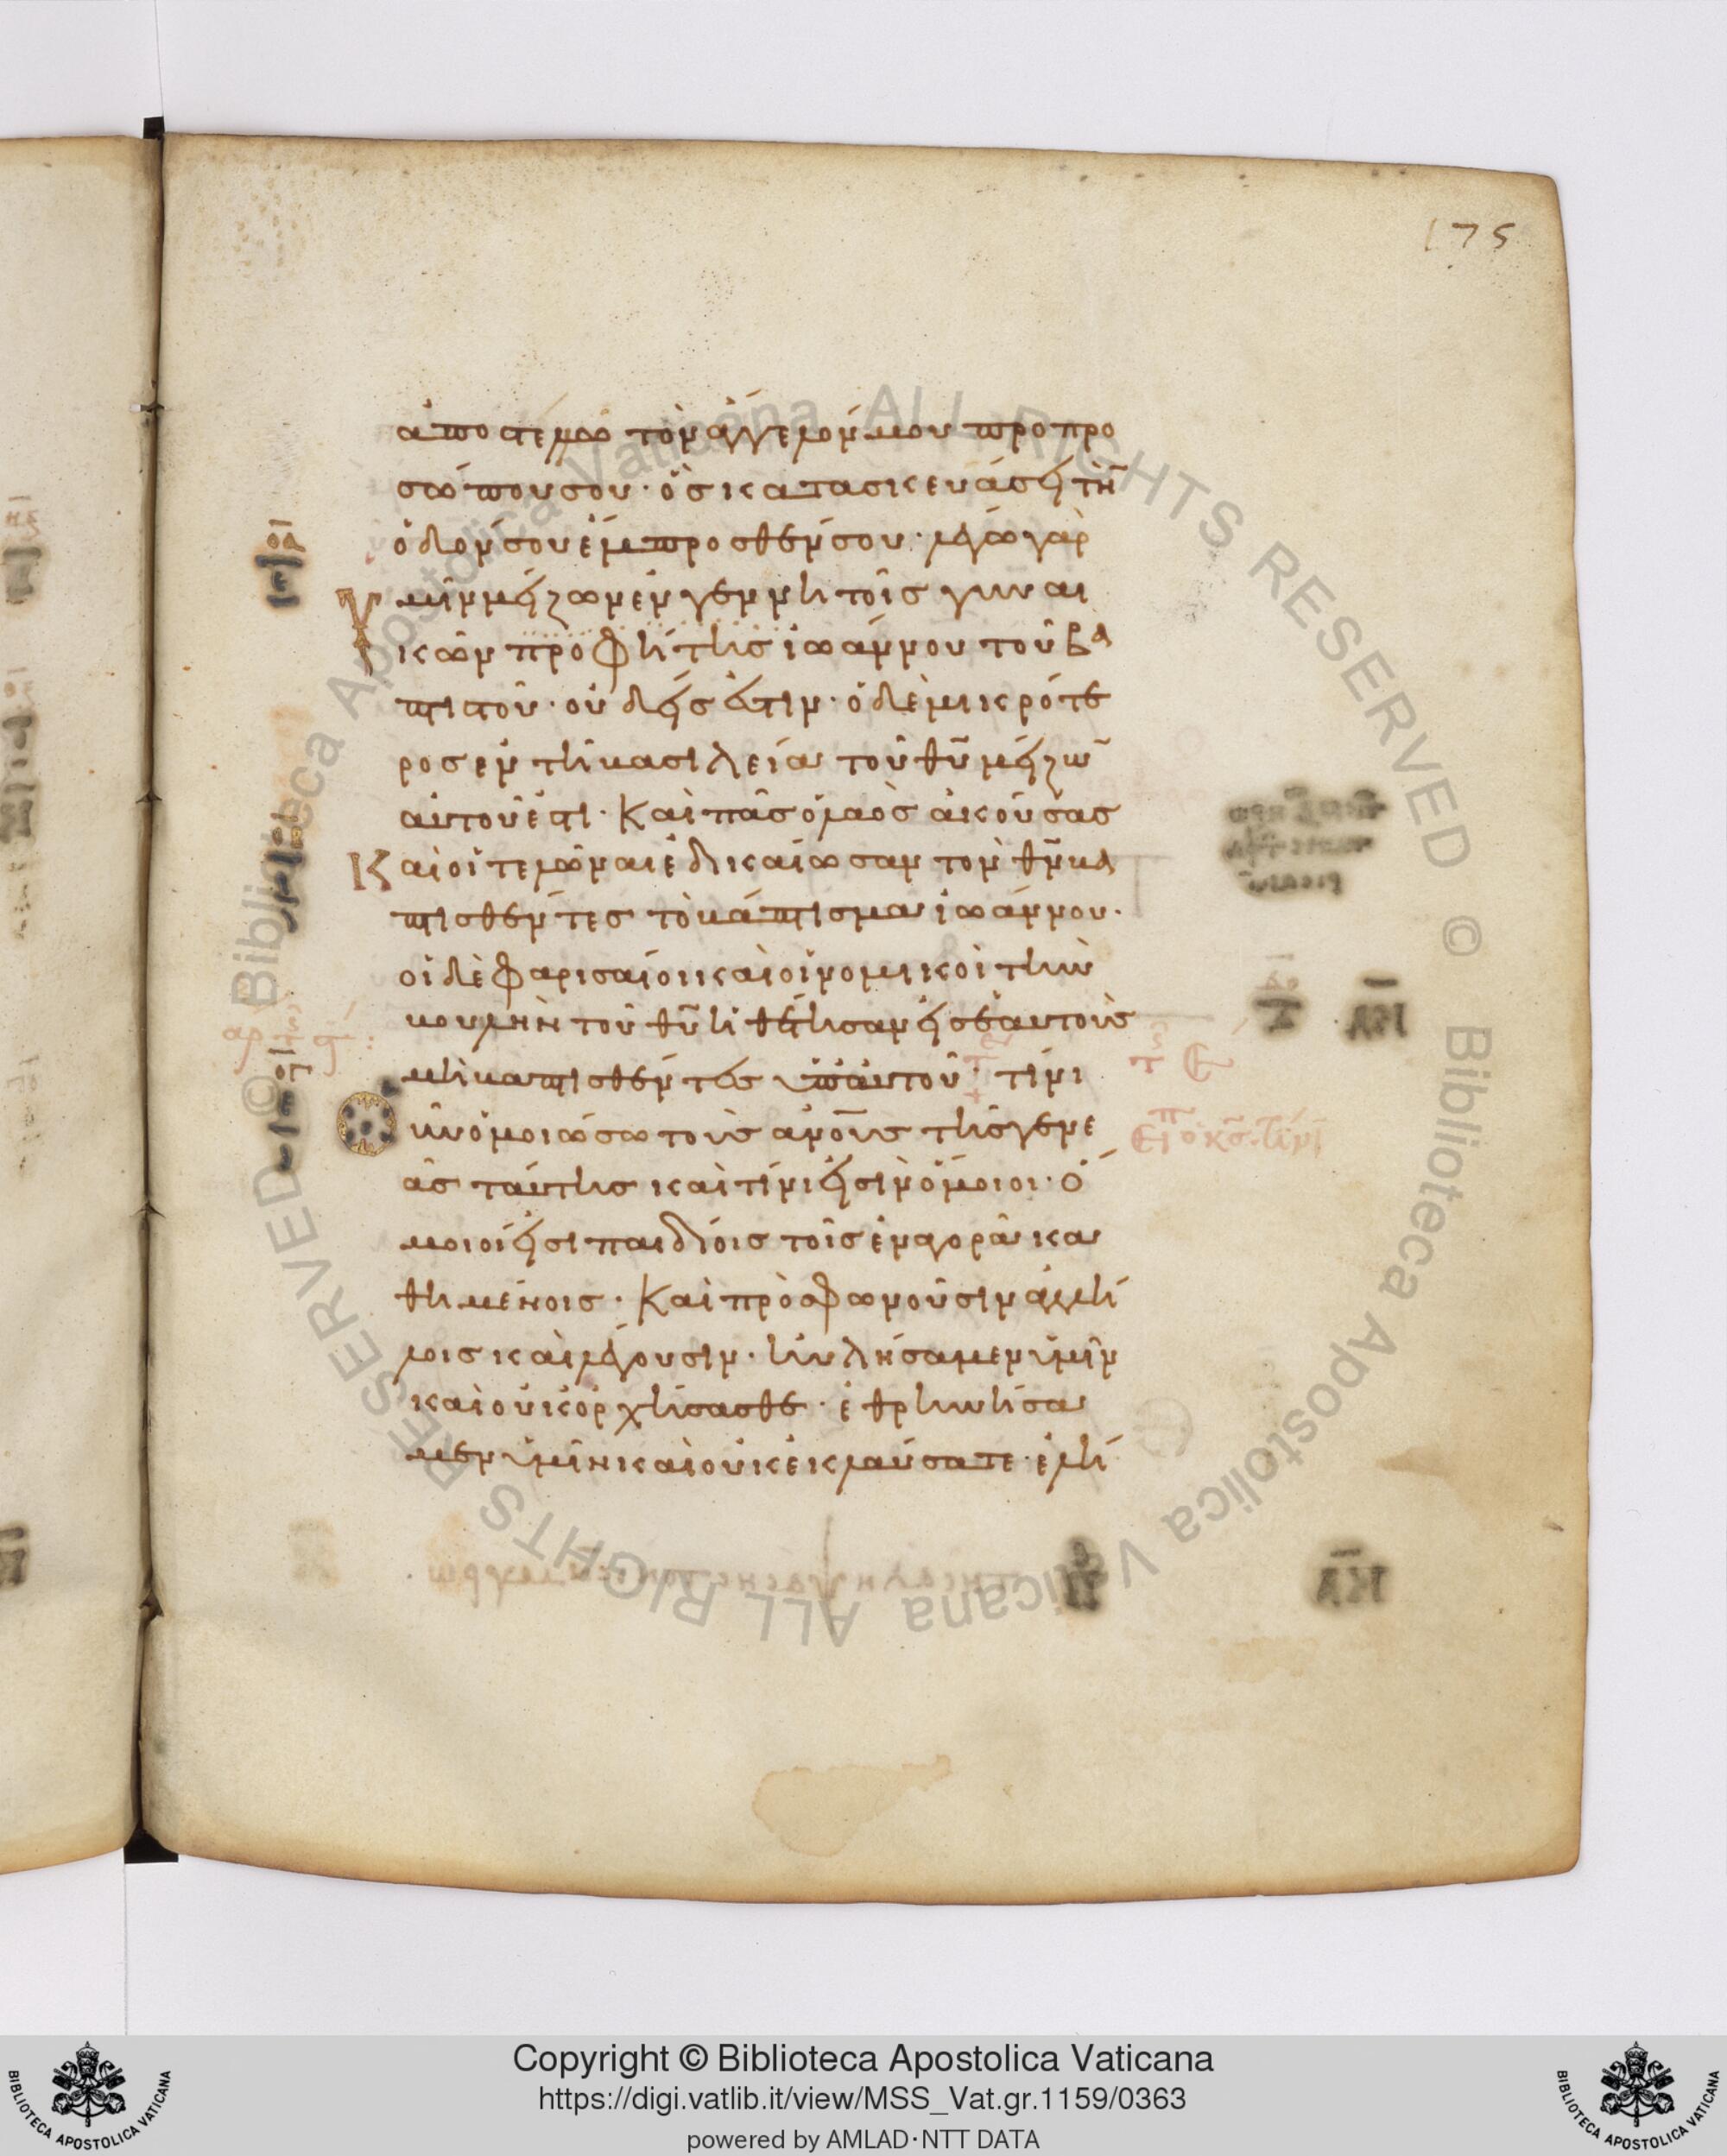 175
ἀποστέλλω τὸν ἄγγελόν μου προ προ
σώπου σου · ὃς κατασκευάσει τὴν
ὁδόν σου ἔμπροσθέν σου · λέγω γὰρ
ὑμῖν μείζων ἐν γεννητοῖς γυναι
κῶν προφήτης ἰωάννου τοῦ βα
πτιστοῦ · οὐδείς ἐστιν · ὁ δὲ μικρότε
ρος ἐν τῆ βασιλεία τοῦ θ̅υ̅ μείζω̅
αὐτοῦ ἐστι · Καὶ πᾶς ὁ λαὸς ἀκούσας
Καὶ οἱ τελῶναι ἐδικαίωσαν τὸν θ̅ν̅ βα
πτισθέντες τὸ βάπτισμα ἰωάννου ·
οἱ δὲ φαρισαίοι καὶ οἱ νομικοὶ τὴν
βουλὴν τοῦ θ̅υ̅ ἠθέτησαν εἰς ἑαυτοὺς
μὴ βαπτισθέντες ὑπ' αὐτοῦ · τίνι
οὖν ὁμοιώσω τοὺς α̅ν̅ους τῆς γενε
ᾶς ταύτης καὶ τίνι εἰσὶν ὅμοιοι · ὅ
μοιοί εἰσι παιδίοις τοῖς ἐν ἀγορᾶ κα
θημένοις · Καὶ προσφωνοῦσιν ἀλλή
λοις καὶ λέγουσιν · ηὐλήσαμεν ὑμῖν
καὶ οὐκ ὀρχήσασθε · ἐθρηνήσα
μεν ὑμῖν καὶ οὐκ ἐκλαύσατε · ἐλή
Copyright © Biblioteca Apostolica Vaticana
https://digi.vatlib.it/view/MSS_Vat.gr.1159/0363
powered by AMLAD·NTT DATA
BIBLIOTECA APOSTOLICA VATICANA
BIBLIOTECA APOSTOLICA VATICANA
© Biblioteca Apostolica Vaticana ALL RIGHTS RESERVED © Biblioteca Apostolica Vaticana ALL RIGHTS RESERVED